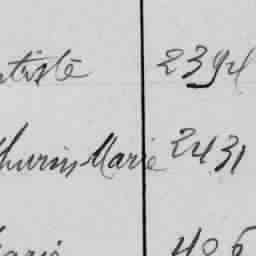 tiste 2394
thurin Marie 2431
Marie 406